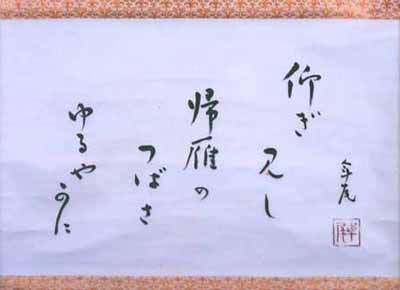 年尾
仰ぎ
見し
帰雁の
つばさ
ゆるや
かに